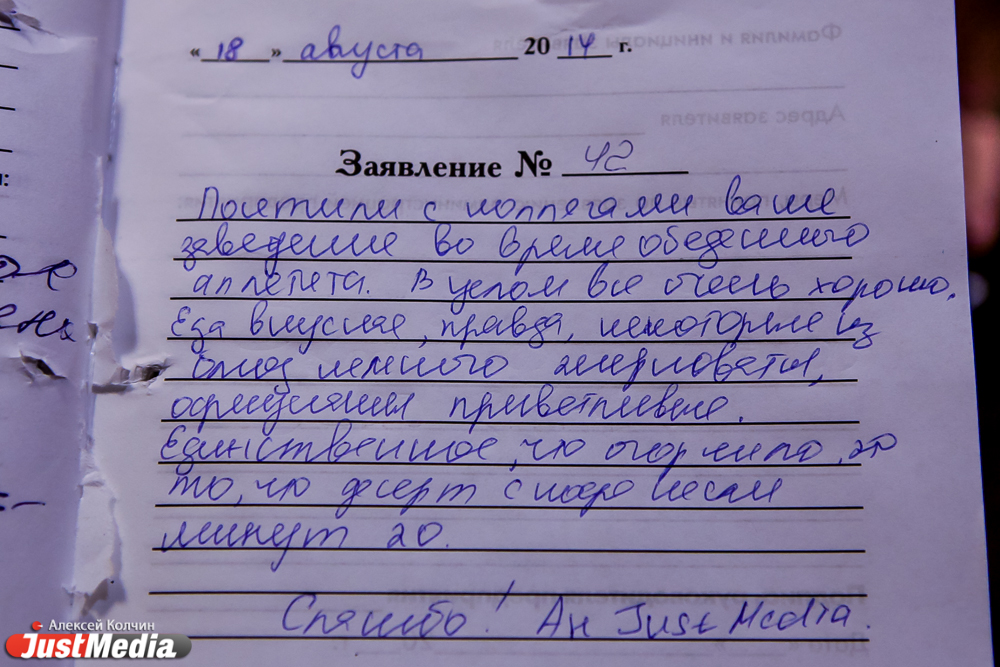 «18» августа 2014 г.
Заявление № 42
Посетили с коллегами ваше
заведение во время обеденного
аппетета. В целом все очень хорошо.
Еда вкусная, правда, некоторые из
блюд немного жирноваты,
официанты приветливые.
Единственное, что огорчило, это
то, что десерт с кофе несли
минут 20.
Спасибо! Ан Just Media.
Фамилия и инициалы заявителя
Адрес заявителя
Алексей Колчин
JustMedia